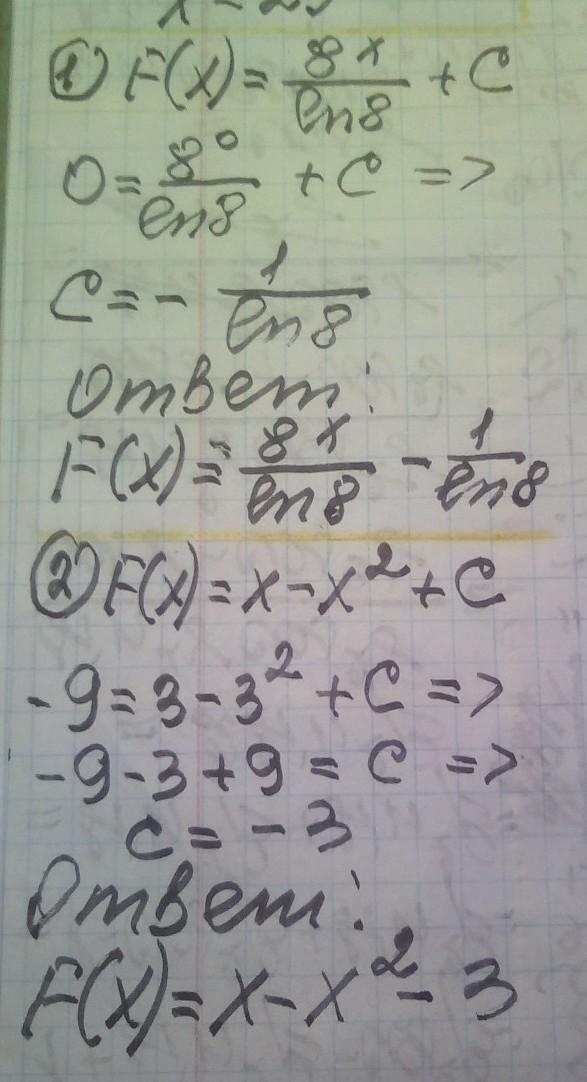 ① F(x) = 8^x/ln8 + C
0 = 8^0/ln8 + C =>
C = - 1/ln8
Ответ:
F(x) = 8^x/ln8 - 1/ln8
② F(x) = x - x² + C
-9 = 3 - 3² + C =>
-9 - 3 + 9 = C =>
C = -3
Ответ:
F(x) = x - x² - 3